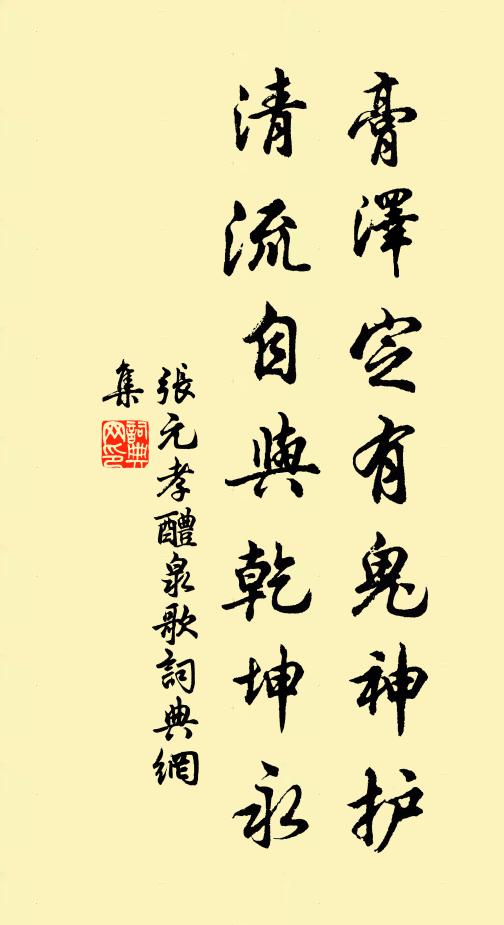 膏澤定有鬼神护
清流自與乾坤永
張元孝醴泉歌詞典網
集
詞典
网印